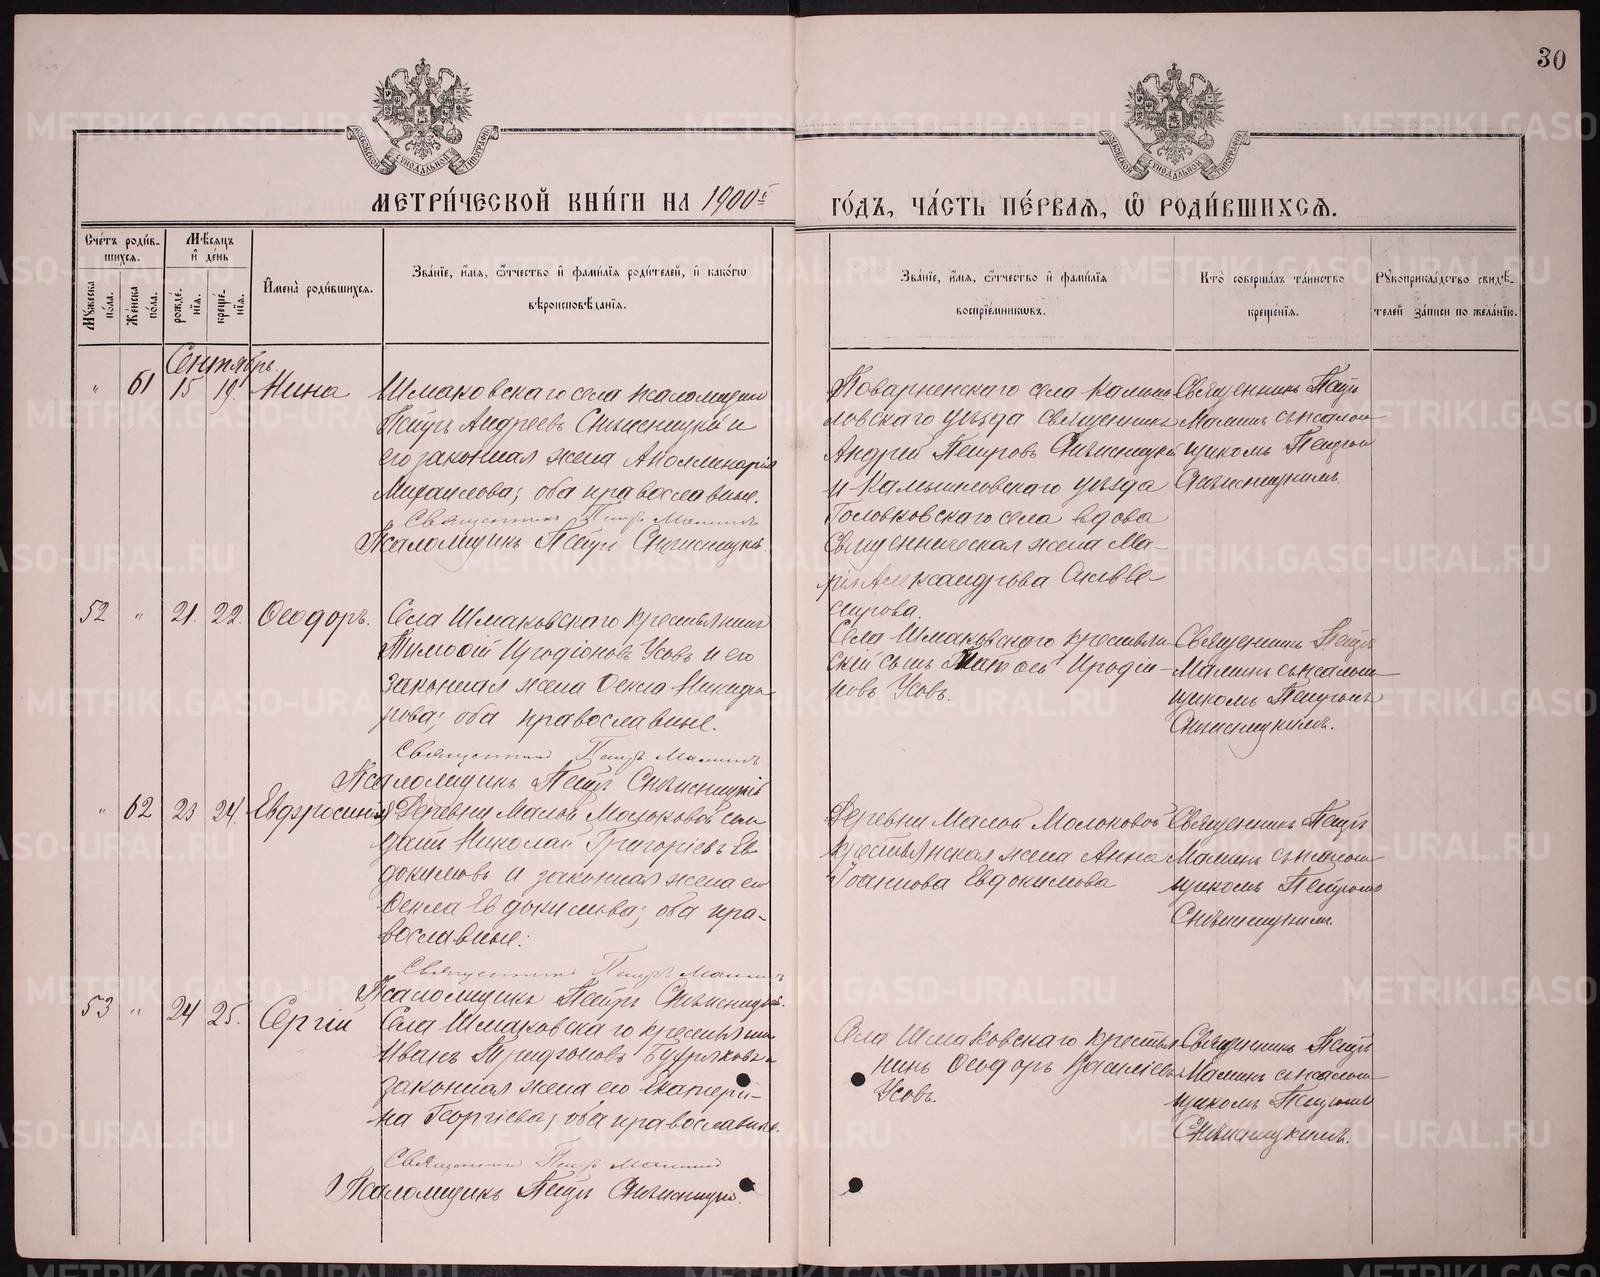 30
МЕТРИ́ЧЕСКОЙ КНИ́ГИ НА 1900 й
ГО́ДЪ, ЧА́СТЬ ПЕ́РВАЯ, Ѡ҆ РОДИ́ВШИХСЯ.
Сче́тъ роди́в-
шихся.
Мѣ́сяцъ
и҆ де́нь
Му́жеска по́ла.
Же́нска по́ла.
рожде́-нїя.
креще́-нїя.
И҆мена̀ роди́вшихся.
Зва́нїе, и҆́мя, ѻ҆́тчество и҆ фами́лїя роди́телей, и҆ како́гѡ
вѣроисповѣ́данїя.
Зва́нїе, и҆́мя, ѻ҆́тчество и҆ фами́лїя
воспрїе́мникѡвъ.
Кто̀ соверша́лъ та́инство
креще́нїя.
Рꙋкоприкла́дство свидѣ́-
телей за́писи по жела́нїю.
Сентябрь.
" 61 15 19 Нина
Шмаковскаго села псаломщикъ
Петръ Андреевъ Снѣжницкій и
его законная жена Аполлинарія
Михаилова; оба православные.
Священникъ Петръ Малининъ
Псаломщикъ Петръ Снѣжницкій.
Поварненскаго села Камыш
ловскаго уѣзда священникъ
Андрей Петровъ Снѣжницкій
и Камышловскаго уѣзда
села вдова
священническая жена Ма-
рія Александрова Сильве-
строва.
Священникъ Петръ
Малинъ съ псалом
щикомъ Петромъ
Снѣжницкимъ.
52 " 21. 22. Ѳеодоръ.
Села Шмаковскаго крестьянинъ
Тимоѳій Иродіоновъ Усовъ и его
законная жена Ѳекла Никифо
рова; оба православные.
Священникъ Петръ Малининъ
Псаломщикъ Петръ Снѣжницкій
Села Шмаковскаго крестьян
скій сынъ Иродіо-
новъ Усовъ.
Священникъ Петръ
Малинъ съ псалом
щикомъ Петромъ
Снѣжницкимъ.
" 62 23 24. Евфросинія
Деревни Малой Молоковой сол
датъ Николай Григоріевъ Ев
докимовъ и законная жена его
Ѳекла Евдокимова; оба пра-
вославные.
Священникъ Петръ Малининъ
Псаломщикъ Петръ Снѣжницкій.
Деревни Малой Молоковой
крестьянская жена Анна
Іоаннова Евдокимова
Священникъ Петръ
Малинъ съ псалом
щикомъ Петромъ
Снѣжницкимъ.
53 " 24 25. Сергій
Села Шмаковскаго крестьянинъ
Иванъ Трифоновъ и
законная жена его Екатери-
на Георгіева; оба православные.
Священникъ Петръ Малининъ
Псаломщикъ Петръ Снѣжницкій.
Села Шмаковскаго крестья
нинъ Ѳеодоръ Василіевъ
Усовъ.
Священникъ Петръ
Малинъ съ псалом
щикомъ Петромъ
Снѣжницкимъ.